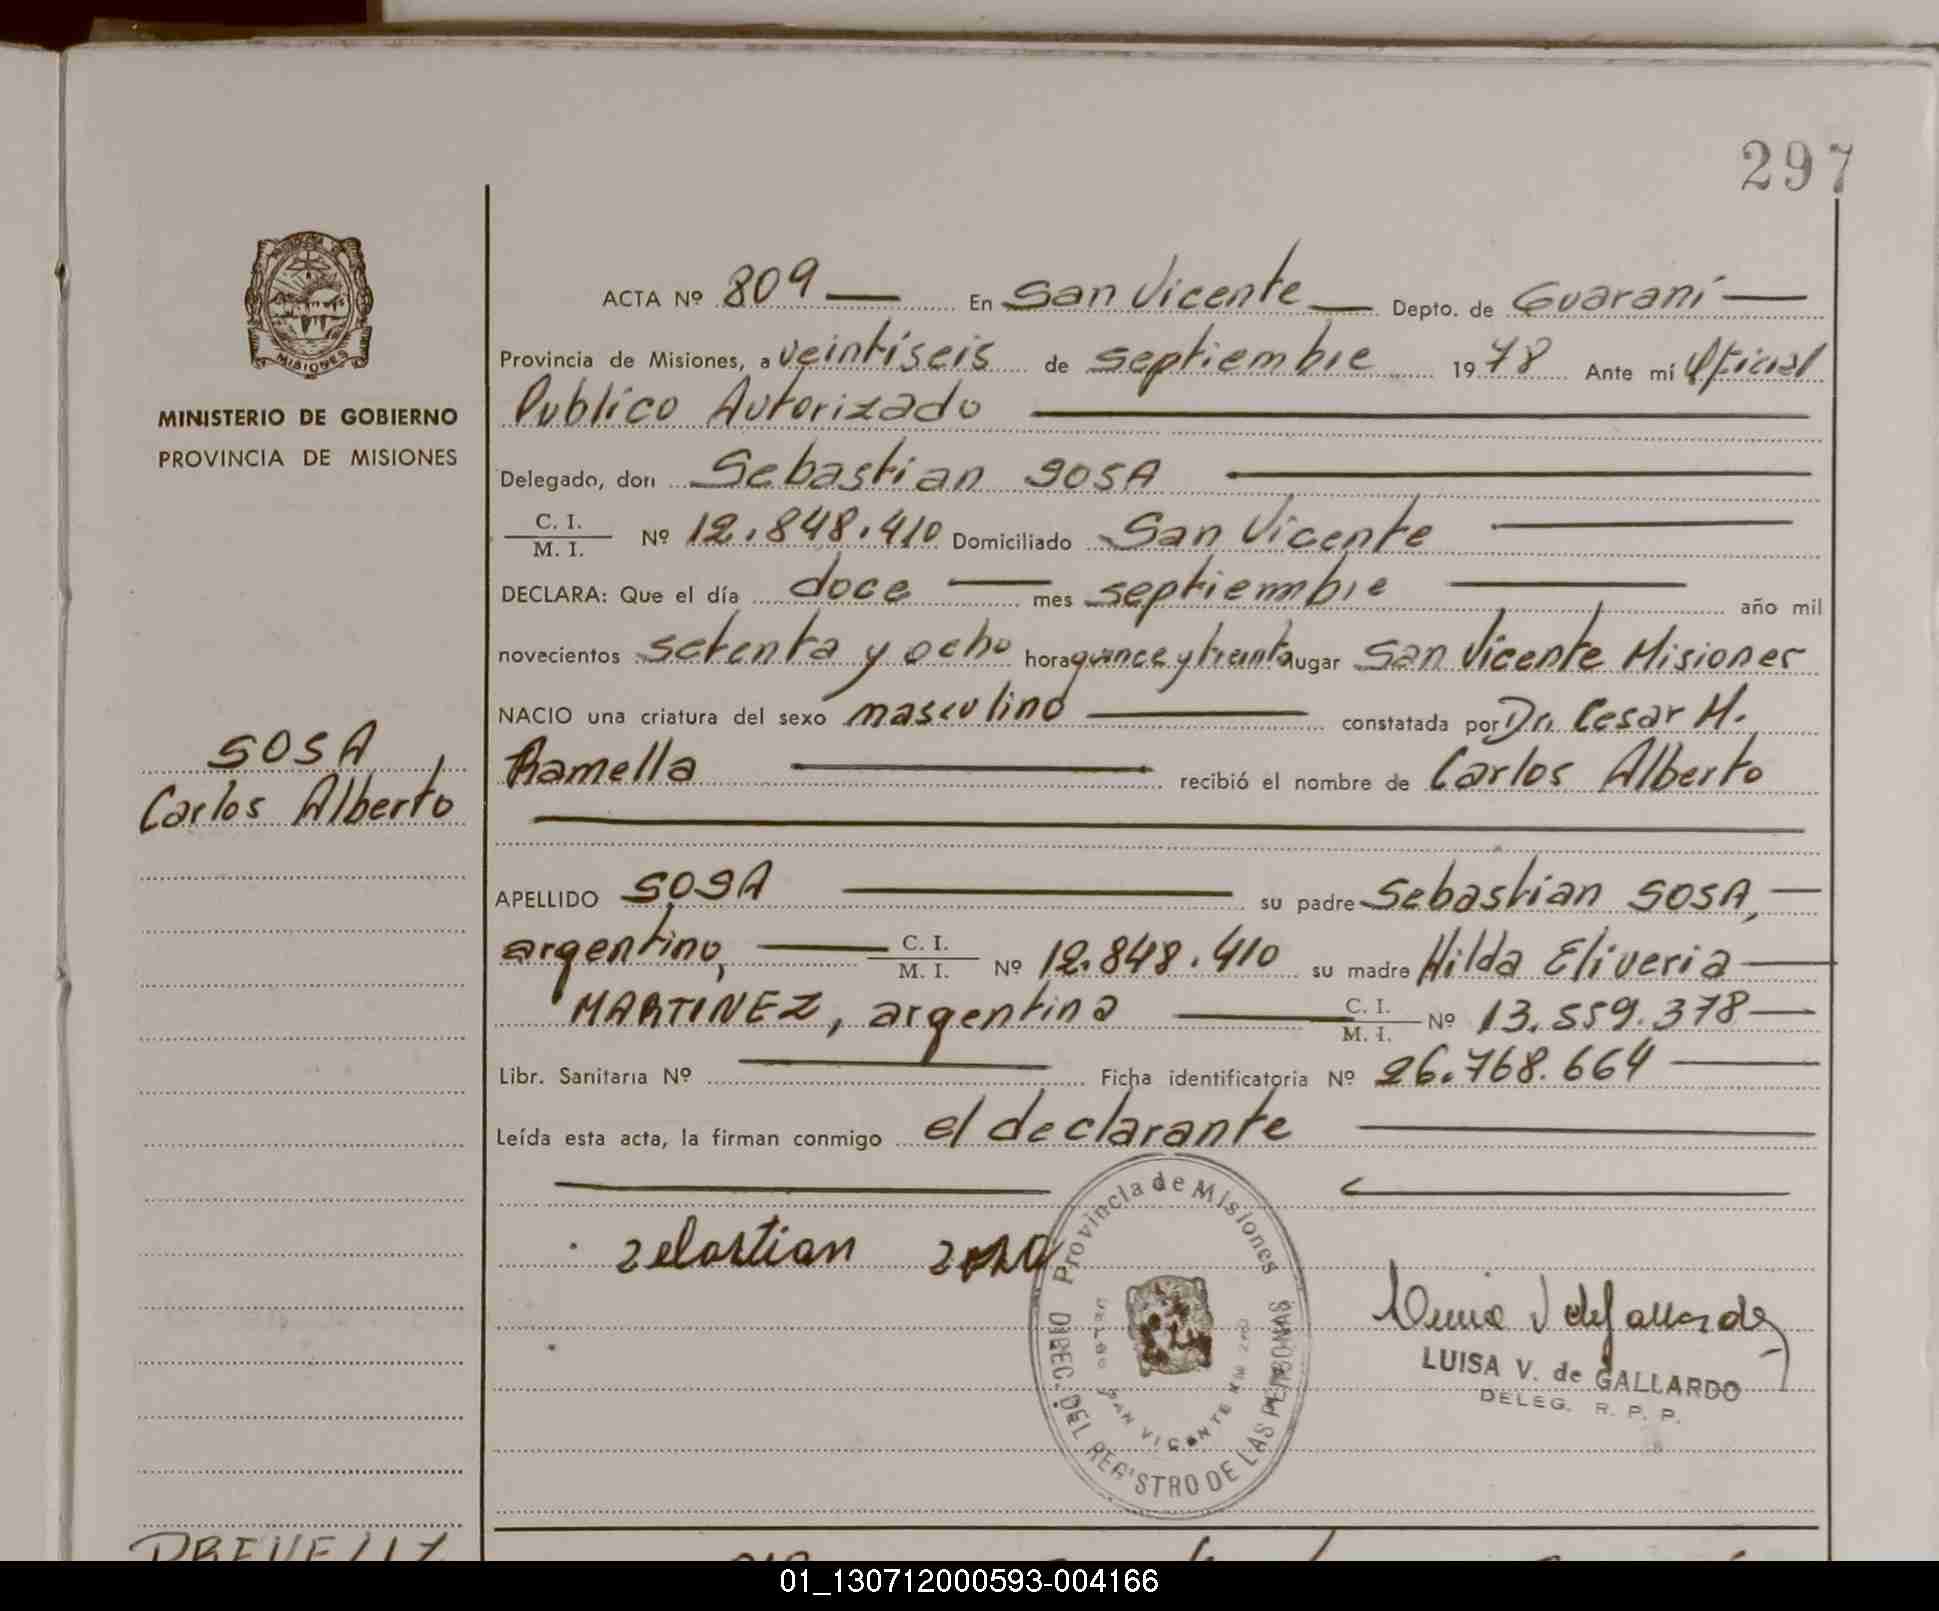 297
MISIONES
MINISTERIO DE GOBIERNO
PROVINCIA DE MISIONES
SOSA
Carlos Alberto
ACTA Nº 809 — En San Vicente — Depto. de Guaraní —
Provincia de Misiones, a veintiseis de septiembre 1978 Ante mí Oficial
Publico Autorizado
Delegado, don Sebastian SOSA
C. I.
M. I. Nº 12.848.410 Domiciliado San Vicente
DECLARA: Que el día doce — mes septiembre — año mil
novecientos setenta y ocho hora quince y treinta lugar San Vicente Misiones
NACIO una criatura del sexo masculino — constatada por Dr. Cesar M.
Ramella — recibió el nombre de Carlos Alberto
APELLIDO SOSA — su padre Sebastian SOSA, —
argentino, — C. I. M. I. Nº 12.848.410 su madre Hilda Eliveria —
MARTINEZ, argentina — C. I. M. I. Nº 13.559.378 —
Libr. Sanitaria Nº — Ficha identificatoria Nº 26.768.664 —
Leída esta acta, la firman conmigo el declarante —
Sebastian Sosa
Provincia de Misiones
DIREC. DEL REGISTRO DE LAS PERSONAS
SAN VICENTE
LUISA V. de GALLARDO
DELEG. R. P. P.
01_130712000593-004166